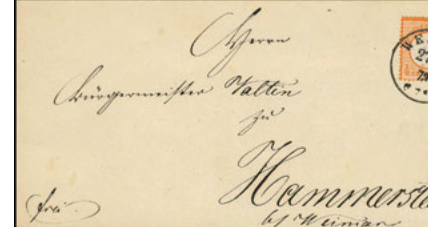 Herrn
Bürgermeister Valtin
zu
Hammerste
b/ Weimar
frei.
WE